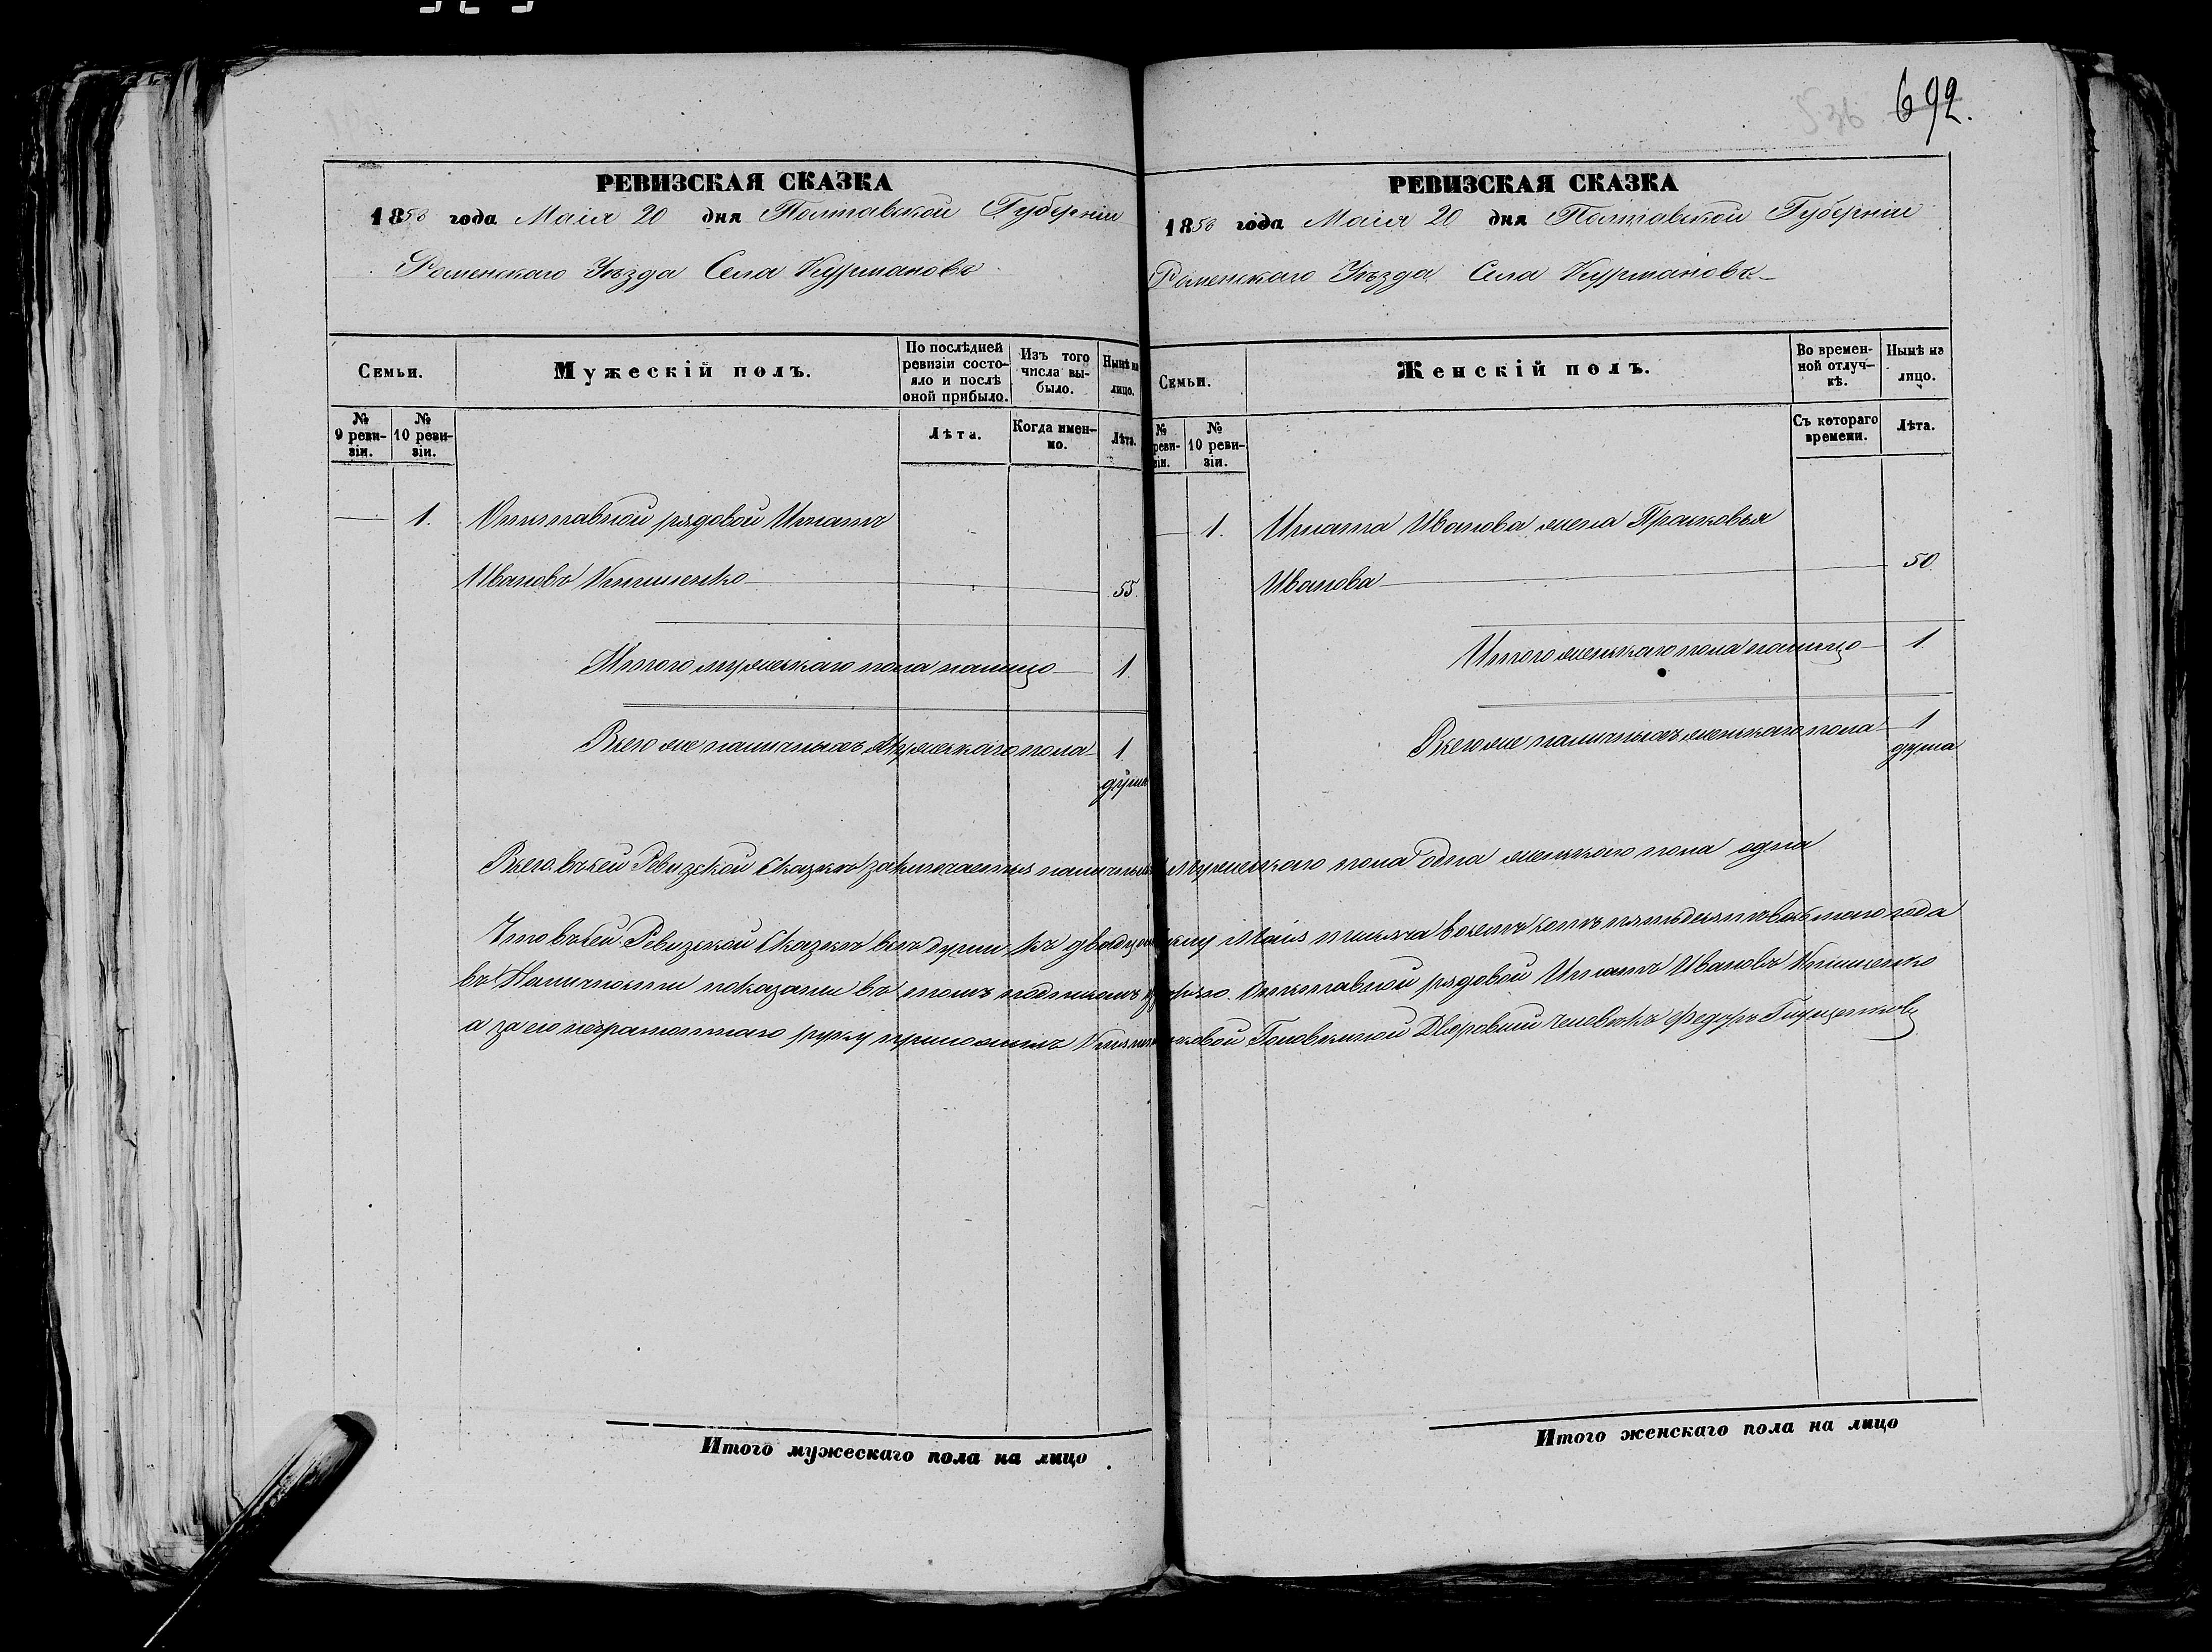 692.
РЕВИЗСКАЯ СКАЗКА
1858 года Маія 20 дня Полтавской Губерніи
Роменскаго Уѣзда Села Курмановъ
Семьи.
Мужескій полъ.
По послѣдней ревизіи состояло и послѣ оной прибыло.
Изъ того числа выбыло.
Нынѣ на лицо.
№ 9 ревизіи.
№ 10 ревизіи.
Лѣта.
Когда именно.
Лѣта.
1. Отставной рядовой Игнатъ
Ивановъ 55.
Итого мужескаго пола налицо 1.
Всего же наличныхъ Мужескаго пола 1
душа
РЕВИЗСКАЯ СКАЗКА
1858 года Маія 20 дня Полтавской Губерніи
Роменскаго Уѣзда Села Курмановъ
Семьи.
Женскій полъ.
Во временной отлучкѣ.
Нынѣ на лицо.
№ ревизіи.
№ 10 ревизіи.
Съ котораго времени.
Лѣта.
1. Игната Иванова жена Прасковья
Иванова 50
Итого женскаго пола налицо 1.
Всего же наличныхъ женскаго пола 1
душа
Всего въ сей Ревизской Сказкѣ заключается наличныхъ мужескаго пола одна женскаго пола одна
Что въ сей Ревизской Сказкѣ всѣ души къ двадцатому Маія тысяча восемь сотъ пятьдесятъ восьмаго года
въ Наличности показаны въ томъ подписомъ Отставной рядовой Игнатъ Ивановъ
а за его неграмотнаго руку приложилъ Дворовый человѣкъ Федоръ
Итого мужескаго пола на лицо
Итого женскаго пола на лицо